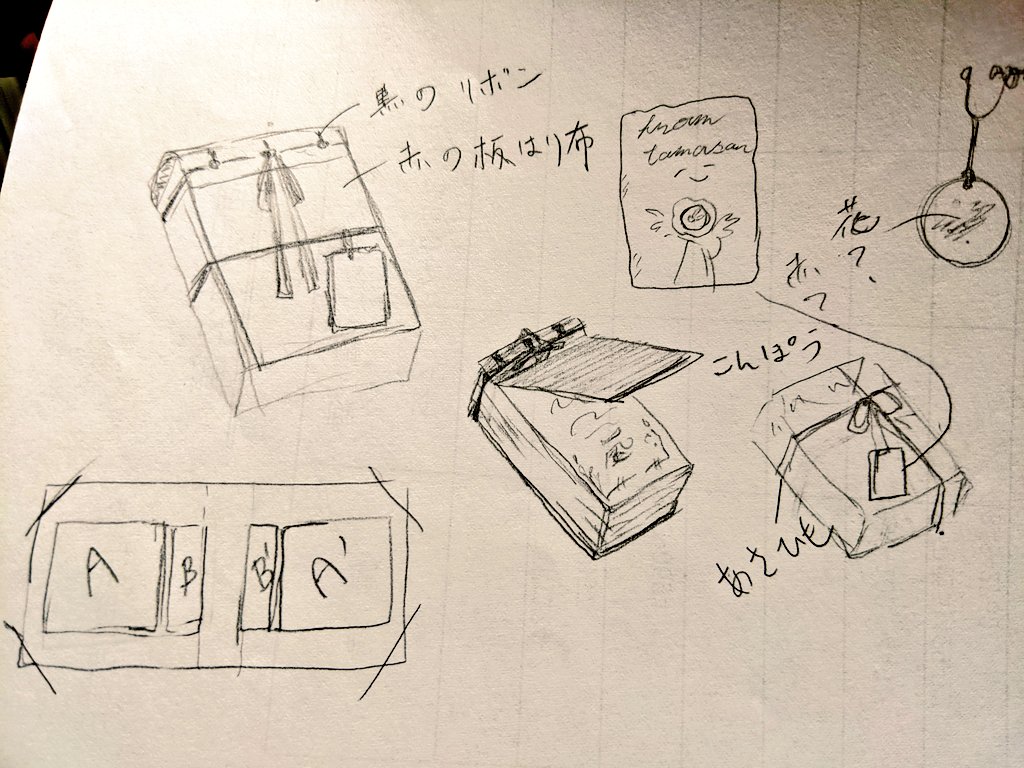 黒のリボン
赤の板はり布
from
tamasan
花?
赤?
こんぽう
あさひも
A
B
B'
A'